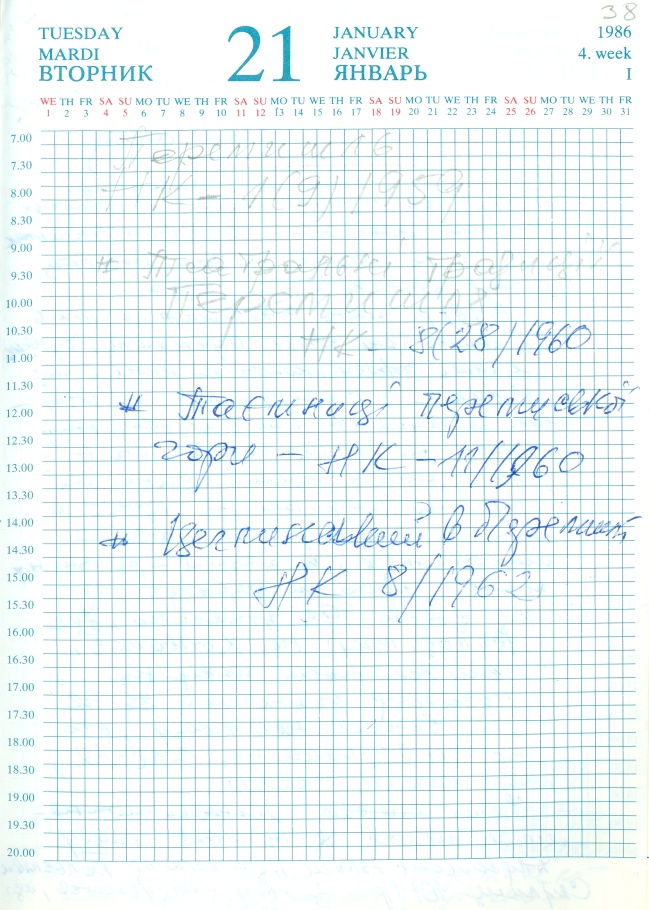 38
TUESDAY
MARDI
ВТОРНИК
21
JANUARY
JANVIER
ЯНВАРЬ
1986
4. week
I
WE TH FR SA SU MO TU WE TH FR SA SU MO TU WE TH FR SA SU MO TU WE TH FR SA SU MO TU WE TH FR
1 2 3 4 5 6 7 8 9 10 11 12 13 14 15 16 17 18 19 20 21 22 23 24 25 26 27 28 29 30 31
7.00
7.30
8.00
8.30
9.00
9.30
10.00
10.30
11.00
11.30
12.00
12.30
13.00
13.30
14.00
14.30
15.00
15.30
16.00
16.30
17.00
17.30
18.00
18.30
19.00
19.30
20.00
Перемишль
НК - 1(9)/1959
# Театральні традиції
Перемишля
НК - 8(28)/1960
# Таємниці перемиської
гори - НК - 11/1960
# в Перемишлі
НК 8/1962